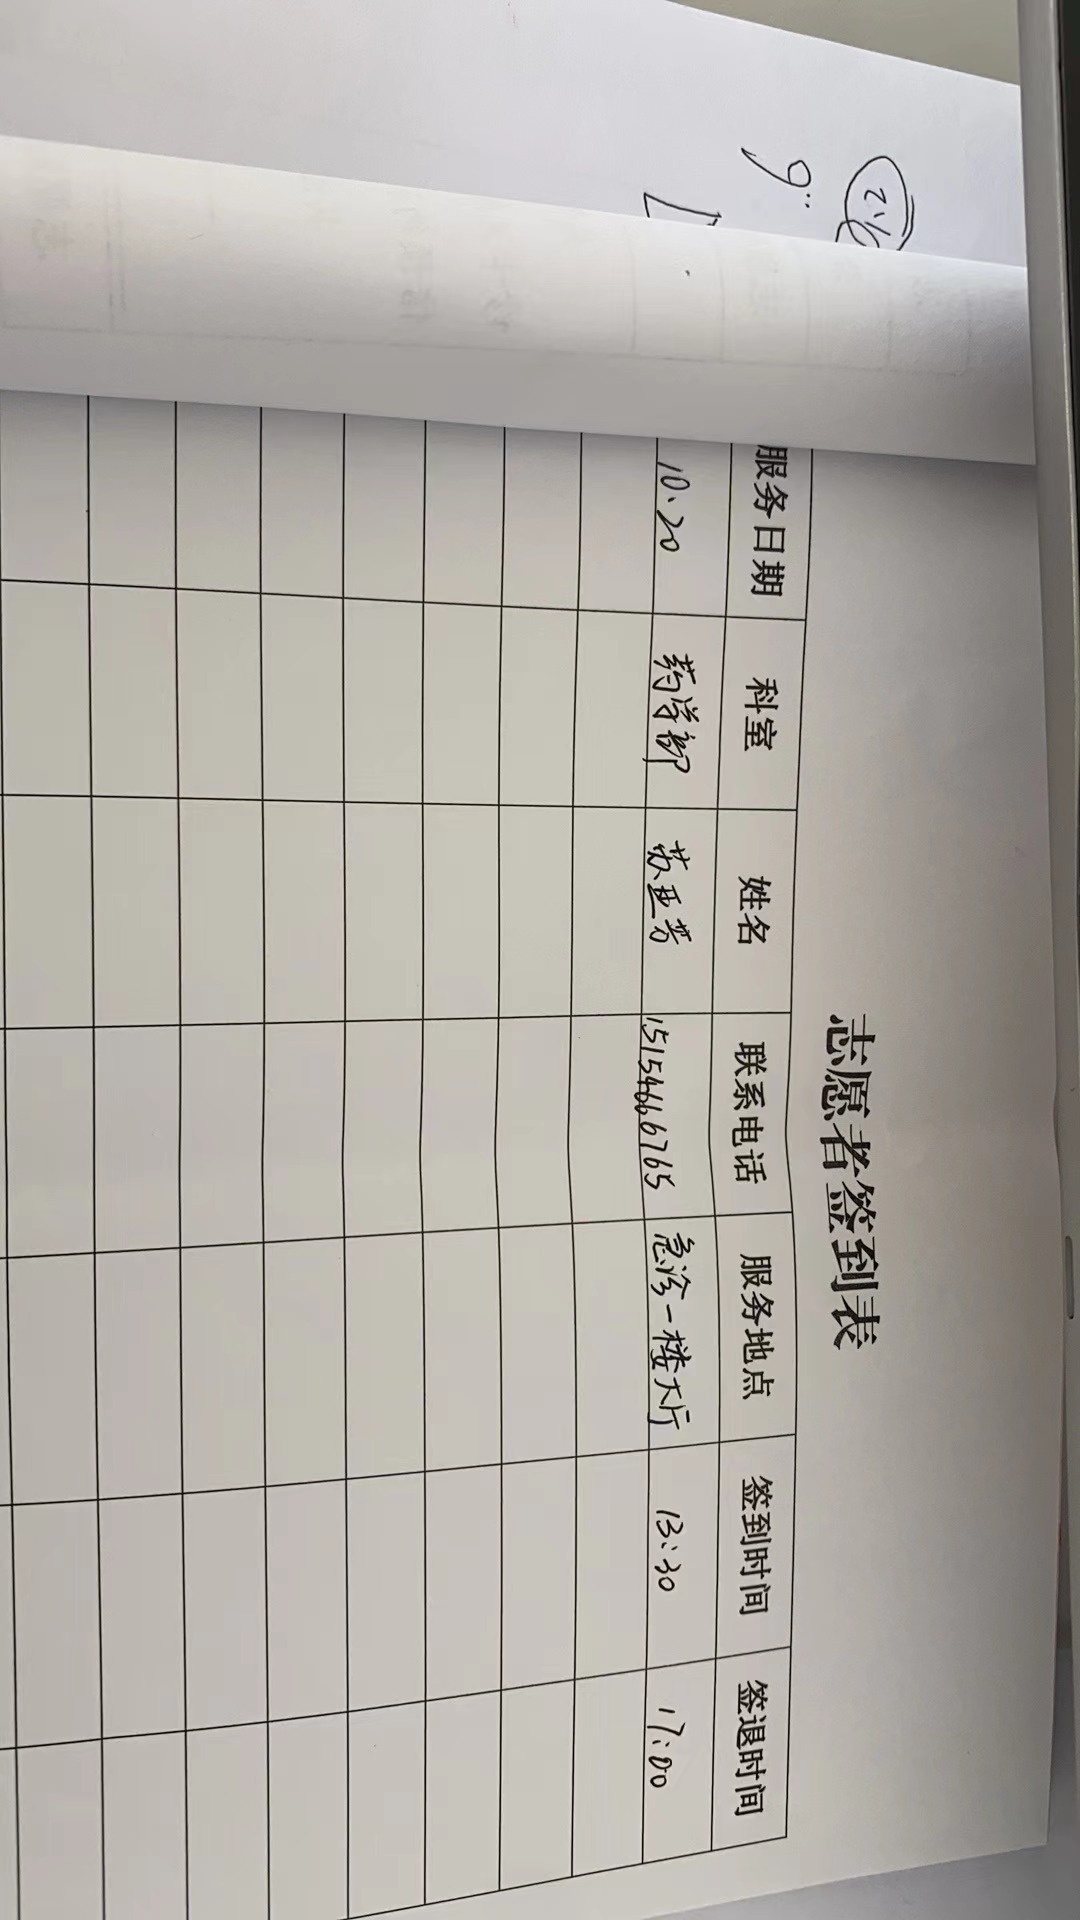 志愿者签到表
服务日期 科室 姓名 联系电话 服务地点 签到时间 签退时间
10.20 药学部 苏亚芳 15154666765 急诊一楼大厅 13:30 17:00